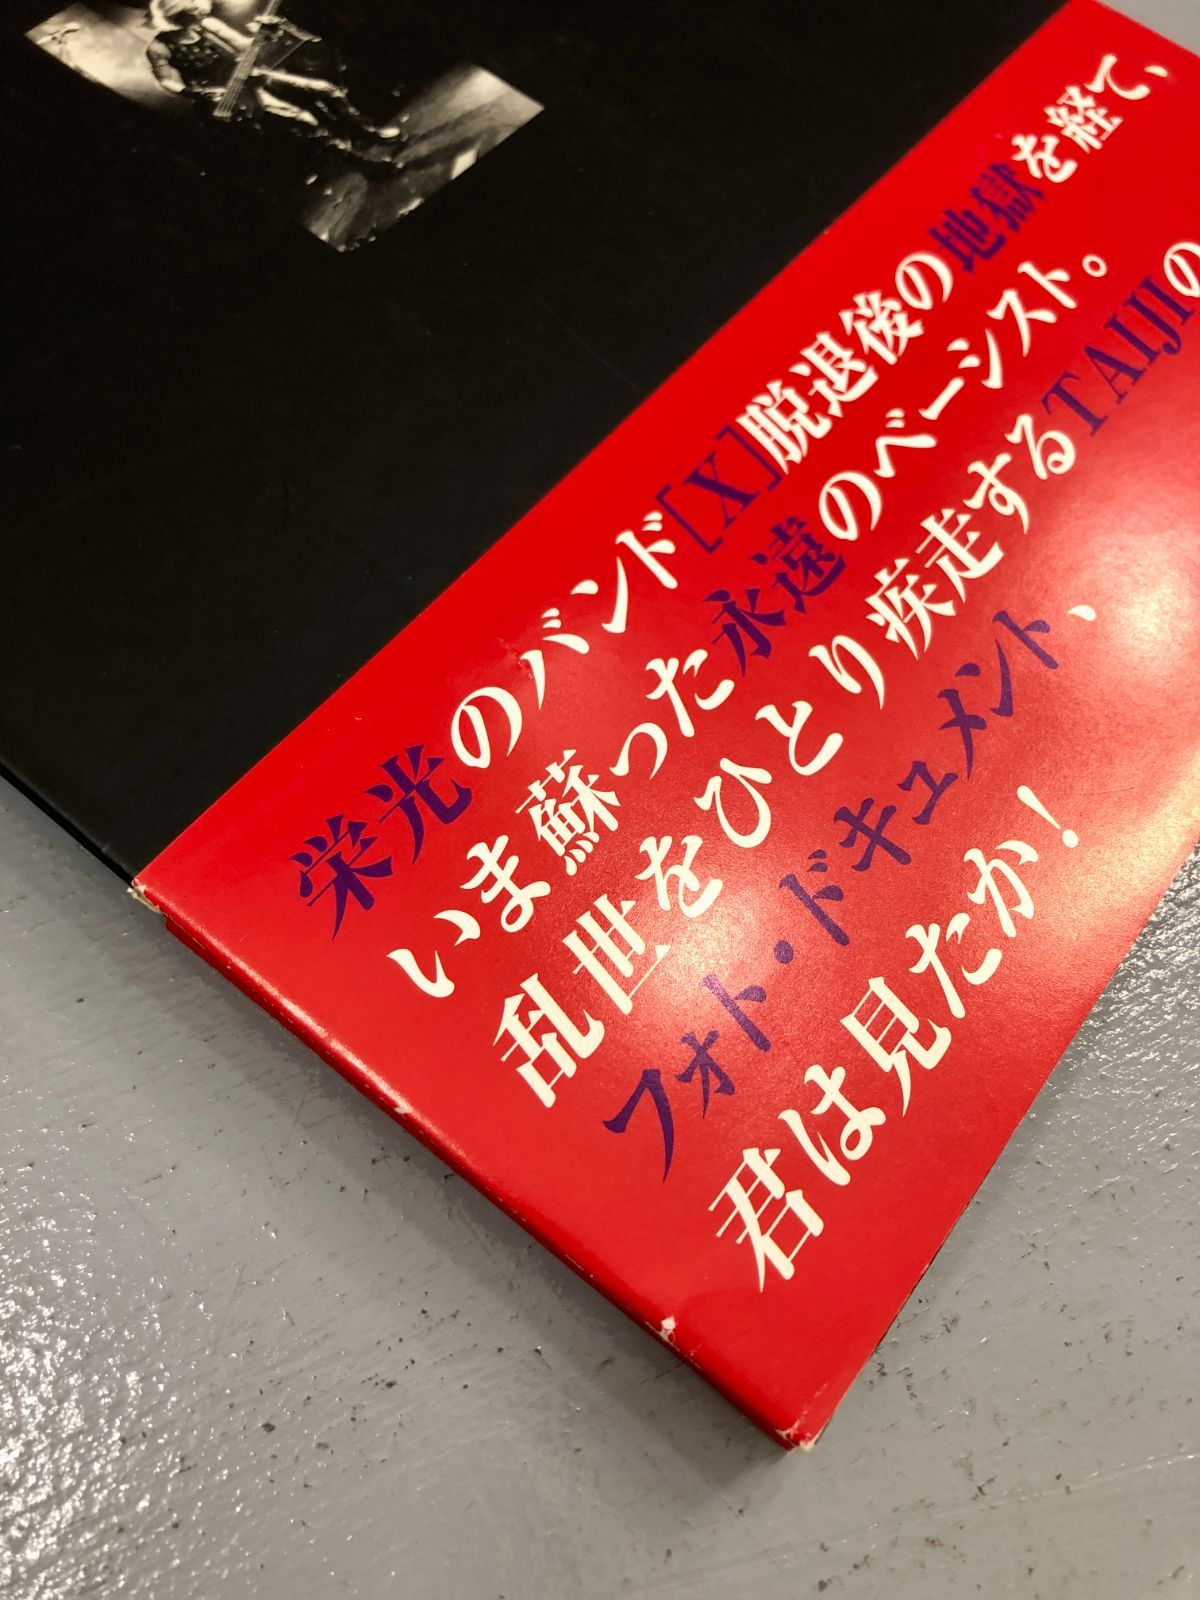 栄光のバンド[X]脱退後の地獄を経て、
いま蘇った永遠のベーシスト。
乱世をひとり疾走するTAIJIの
フォト・ドキュメント、
君は見たか!